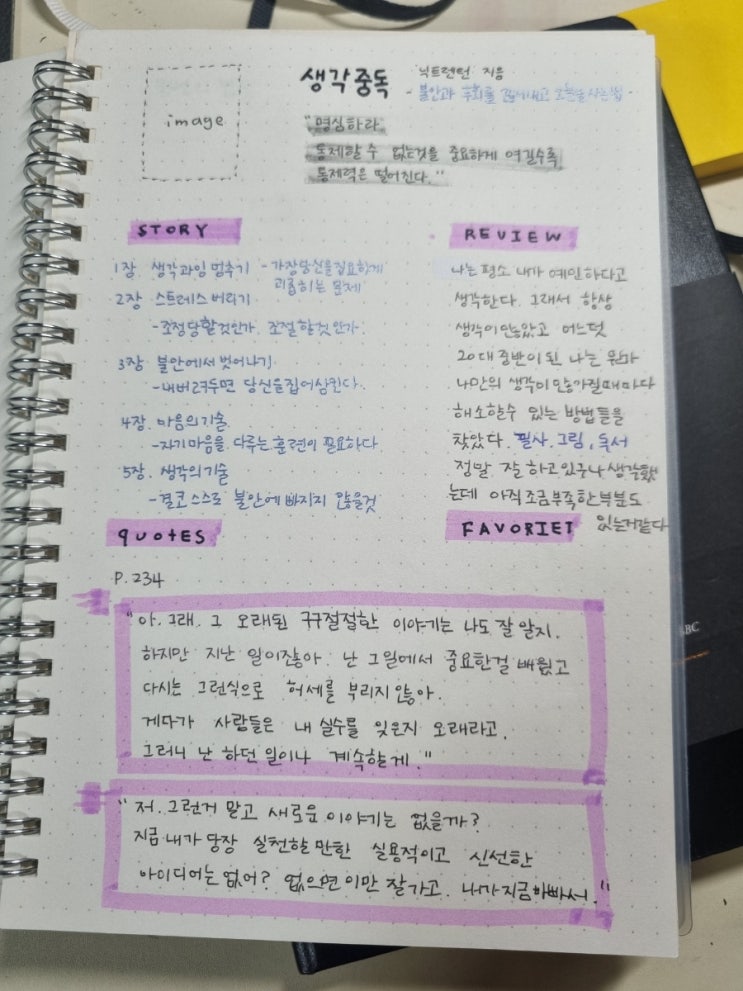 image
생각중독
닉트렌턴 지음
- 불안과 후회를 끊어내고 오늘을 사는 법 -
"명심하라
통제할 수 없는것을 중요하게 여길수록
통제력은 떨어진다."
STORY
1장 생각과잉 멈추기 - 가장당신을집요하게
괴롭히는 문제
2장 스트레스 버리기
-조정당할것인가. 조절할것인가
3장 불안에서 벗어나기
-내버려두면 당신을집어삼킨다.
4장. 마음의기술
-자기마음을 다루는 훈련이 필요하다
5장. 생각의기술
-결코 스스로 불안에 빠지지 않을것
REVIEW
나는 평소 내가 예민하다고
생각한다. 그래서 항상
생각이많았고 어느덧
20대 중반이 된 나는 뭔가
나만의 생각이 많아질때마다
해소할수 있는 방법들을
찾았다. 필사. 그림, 독서
정말 잘 하고있구나 생각했
는데 아직 조금부족한부분도
있는거같다
QUOTES
FAVORIET
P. 234
"아. 그래. 그 오래된 구구절절한 이야기는 나도 잘 알지.
하지만 지난 일이잖아. 난 그일에서 중요한걸 배웠고
다시는 그런식으로 허세를 부리지 않아.
게다가 사람들은 내 실수를 잊은지 오래라고.
그러니 난 하던 일이나 계속할게."
"저. 그런거 말고 새로운 이야기는 없을까?
지금 내가 당장 실천할 만한 실용적이고 신선한
아이디어는 없어? 없으면 이만 잘가고. 내가지금바빠서."
BC